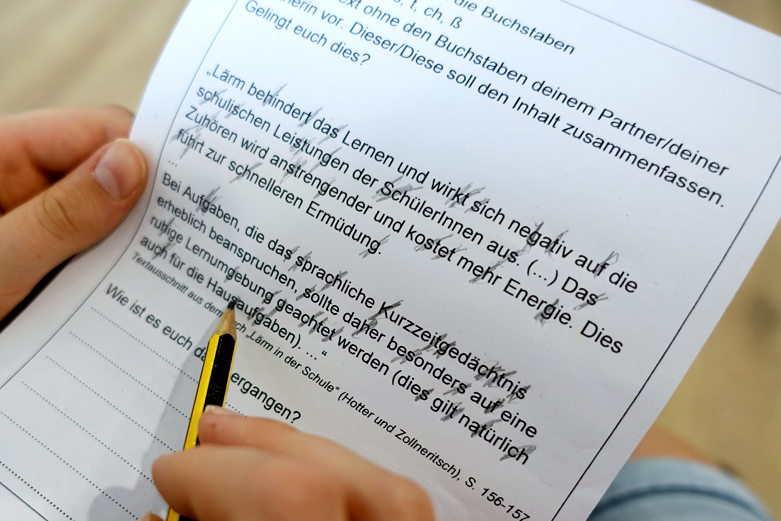 die Buchstaben
, t, ch, ß
ohne den Buchstaben deinem Partner/deiner
vor. Dieser/Diese soll den Inhalt zusammenfassen.
Gelingt euch dies?
„Lärm behindert das Lernen und wirkt sich negativ auf die
schulischen Leistungen der SchülerInnen aus. (...) Das
Zuhören wird anstrengender und kostet mehr Energie. Dies
führt zur schnelleren Ermüdung.
...
Bei Aufgaben, die das sprachliche Kurzzeitgedächtnis
erheblich beanspruchen, sollte daher besonders auf eine
ruhige Lernumgebung geachtet werden (dies gilt natürlich
auch für die Hausaufgaben). ... “
Textausschnitt aus dem „Lärm in der Schule“ (Hotter und Zollneritsch), S. 156-157
Wie ist es euch ergangen?